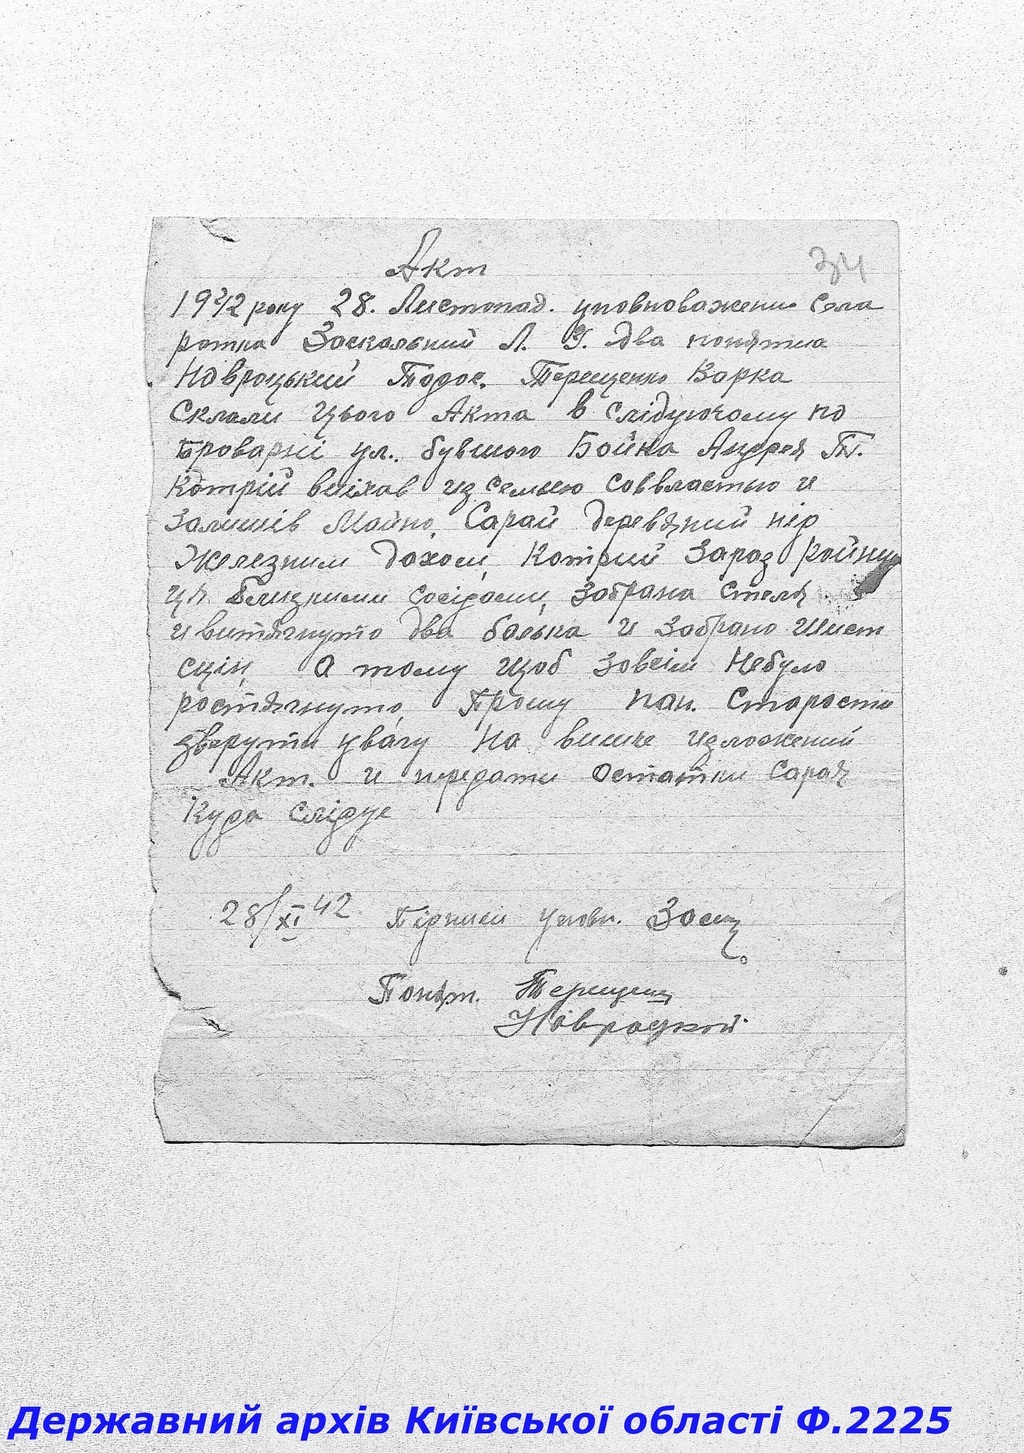 Акт
34
1942 року 28. Листопад. уповноважени села
ратна Заскальний Л. У. два понятиа
Навроцький Тодос, Терещенко Варка
Склали цього Акта в слідуючому по
Броваркі ул. бувшого Бойка Андрея Т.
Котрій виїхав из семьею соввластью и
Залишів Майно, Сарай деревяний під
Железним дахом, Котрий Зараз Району
ця близними сосідами, Забрана стеля
и витягнуто два балька и забрано шист
сцін, А тому щоб зовсім Небуло
ростягнуто, Прошу пан. Старости
звернути увагу На више изложений
Акт. и передати остатки Сарая
Куда слідує
28/XI 42 Підписи уповн. Заск
Понят. Терещен
Навроцкий
Державний архів Київської області Ф.2225